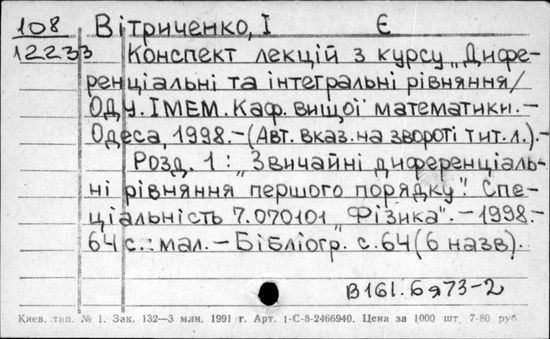 108 Вітриченко, І Є
12233 Конспект лекцій з курсу „Дифе-
ренціальні та інтегральні рівняння/
ОДУ. ІМЕМ. Каф. вищої математики.–
Одеса, 1998.–(Авт. вказ. на звороті тит. л.).–
Розд. 1: „Звичайні диференціаль-
ні рівняння першого порядку". Спе-
ціальність 7.070101 „Фізика".–1998.–
64 с.: мал.–Бібліогр. с. 64 (6 назв).
В161.6я73-2
Киев. тип. № 1. Зак. 132—3 млн. 1991 г. Арт. 1-С-8-2466940. Цена за 1000 шт 7-80 руб